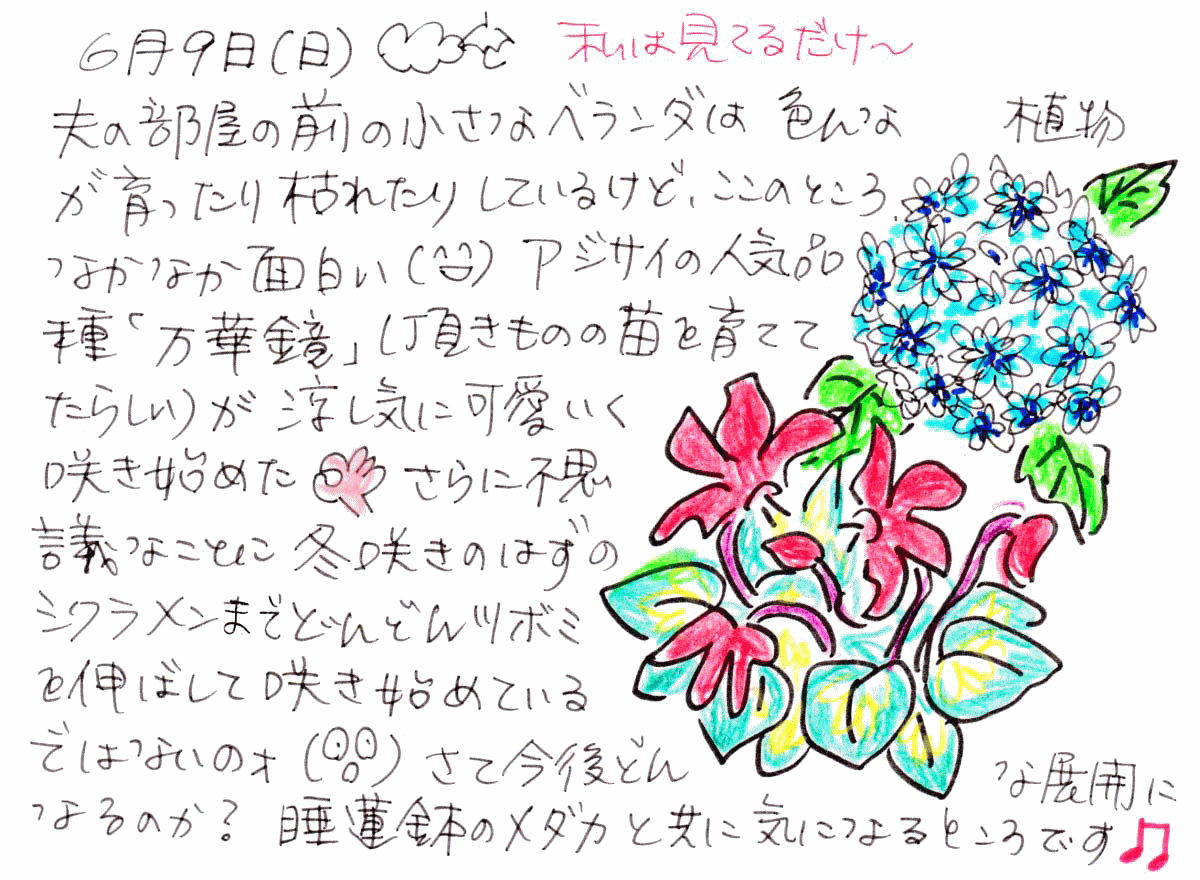 6月9日(日) 私は見てるだけ〜
夫の部屋の前の小さなベランダは 色んな 植物
が育ったり枯れたりしているけど、ここのところ
なかなか面白い( )アジサイの人気品
種「万華鏡」(頂きものの苗を育てて
たらしい)が 涼し気に可愛いく
咲き始めた さらに不思
議なことに 冬咲きのはずの
シクラメンまでどんどんツボミ
を伸ばして咲き始めている
ではないのォ( )さて今後どん な展開に
なるのか? 睡蓮鉢のメダカと共に気になるところです♫